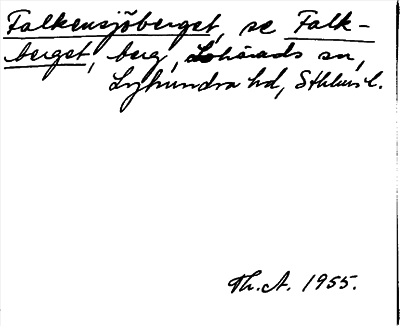 Falkensjöberget, se Falk-
berget, berg, Lohärads sn,
Lyhundra hd, Sthlms l.
Th. A. 1955.